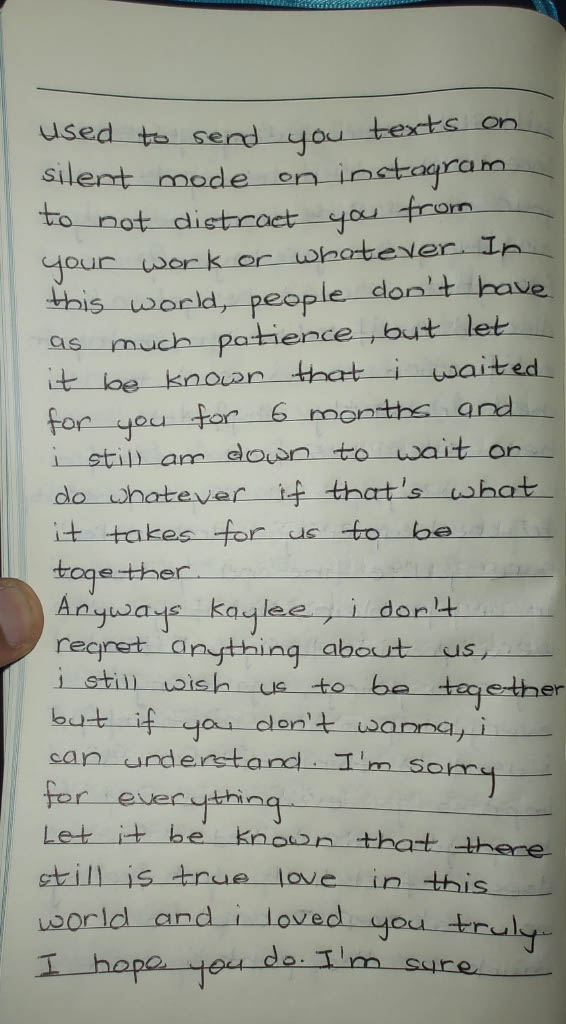 used to send you texts on
silent mode on instagram
to not distract you from
your work or whatever. In
this world, people don't have
as much patience, but let
it be known that i waited
for you for 6 months and
i still am down to wait or
do whatever if that's what
it takes for us to be
together.
Anyways kaylee, i don't
regret anything about us,
i still wish us to be together
but if you don't wanna, i
can understand. I'm sorry
for everything.
Let it be known that there
still is true love in this
world and i loved you truly.
I hope you do. I'm sure